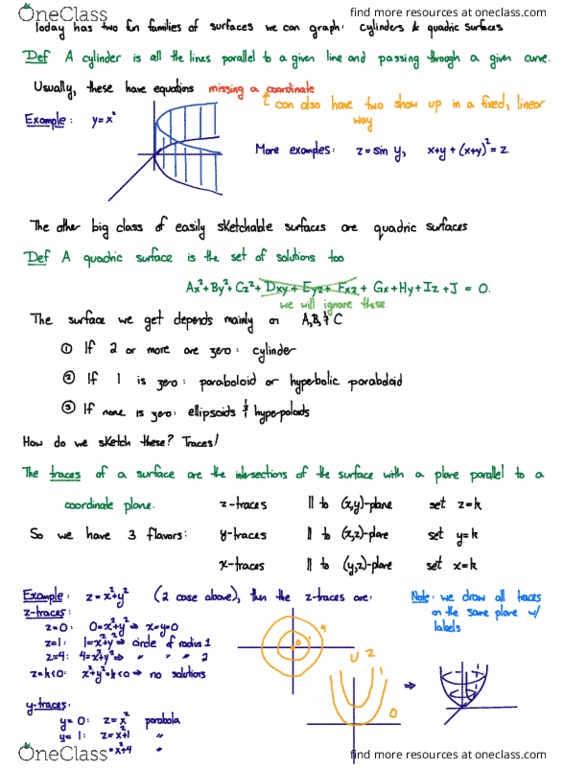 OneClass
find more resources at oneclass.com
Today has two fun families of surfaces we can graph: cylinders & quadric surfaces
Def A cylinder is all the lines parallel to a given line and passing through a given curve.
Usually, these have equations missing a coordinate
can also have two show up in a fixed, linear way
Example: y=x²
More examples: z=sin y, x+y+(x+y)²=z
The other big class of easily sketchable surfaces are quadric surfaces
Def A quadric surface is the set of solutions too
Ax²+By²+Cz²+Dxy+Eyz+Fxz+Gx+Hy+Iz+J=0.
we will ignore these
The surface we get depends mainly on A,B,& C
① If 2 or more are zero: cylinder
② If 1 is zero: paraboloid or hyperbolic paraboloid
③ If none is zero: ellipsoids & hyperboloids
How do we sketch these? Traces!
The traces of a surface are the intersections of the surface with a plane parallel to a
coordinate plane. z-traces || to (x,y)-plane set z=k
So we have 3 flavors: y-traces || to (x,z)-plane set y=k
x-traces || to (y,z)-plane set x=k
Example: z=x²+y² (2 case above), then the z-traces are:
Note: we draw all traces
on the same plane w/
labels
z-traces:
z=0: 0=x²+y² ⇒ x=y=0
z=1: 1=x²+y² ⇒ circle of radius 1
z=4: 4=x²+y² ⇒ " " " 2
z=k<0: x²+y²=k<0 ⇒ no solutions
0 1 4
2 1 0
⇒
1
y-traces:
y=0: z=x² parabola
y=1: z=x²+1 "
=x²+4 "
OneClass
find more resources at oneclass.com